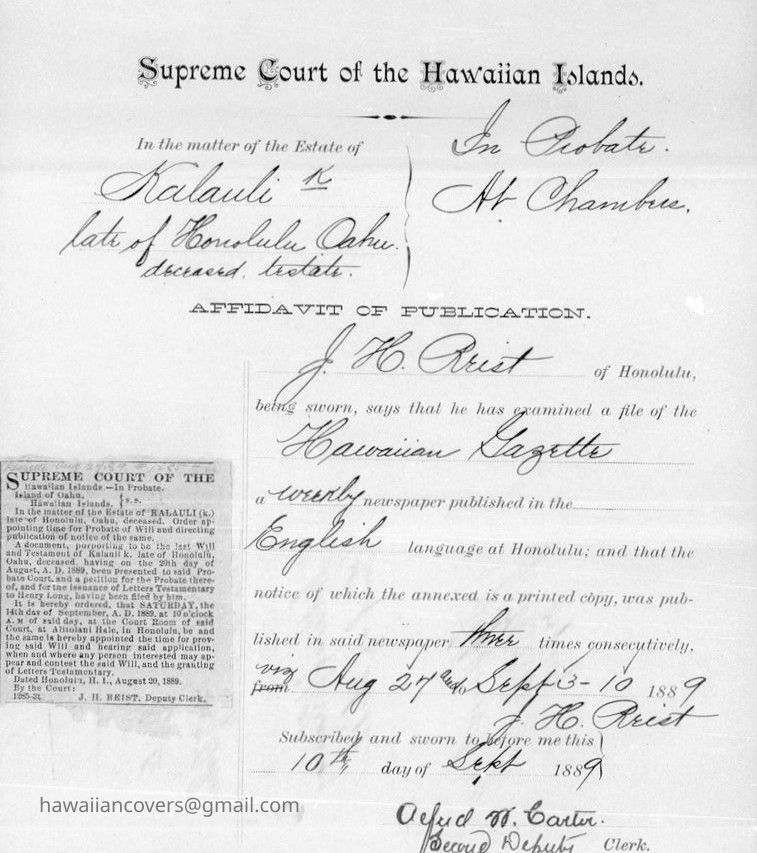 Supreme Court of the Hawaiian Islands.
In the matter of the Estate of
Kalauli K
late of Honolulu Oahu.
deceased, testate.
In Probate.
At Chambers.
AFFIDAVIT OF PUBLICATION.
J. H. Reist of Honolulu,
being sworn, says that he has examined a file of the
Hawaiian Gazette
a weekly newspaper published in the
English language at Honolulu; and that the
notice of which the annexed is a printed copy, was pub-
lished in said newspaper three times consecutively,
viz
from Aug 27 and to Sept 3-10 1889
J. H. Reist
Subscribed and sworn to before me this
10th day of Sept 1889
Alfred W. Carter.
Second Deputy Clerk.
SUPREME COURT OF THE
Hawaiian Islands—In Probate.
Island of Oahu, } s.s.
Hawaiian Islands. }
In the matter of the Estate of KALAULI (k.)
late of Honolulu, Oahu, deceased. Order ap-
pointing time for Probate of Will and directing
publication of notice of the same.
A document, purporting to be the last Will
and Testament of Kalauli k. late of Honolulu,
Oahu, deceased, having on the 20th day of
August, A. D. 1889, been presented to said Pro-
bate Court, and a petition for the Probate there-
of, and for the issuance of Letters Testamentary
to Henry Long, having been filed by him.
It is hereby ordered, that SATURDAY, the
14th day of September, A. D. 1889, at 10 o'clock
A. M of said day, at the Court Room of said
Court, at Aliiolani Hale, in Honolulu, be and
the same is hereby appointed the time for prov-
ing said Will and hearing said application,
when and where any person interested may ap-
pear and contest the said Will, and the granting
of Letters Testamentary.
Dated Honolulu, H. I., August 20, 1889.
By the Court:
1285-3t J. H. REIST, Deputy Clerk.
hawaiiancovers@gmail.com